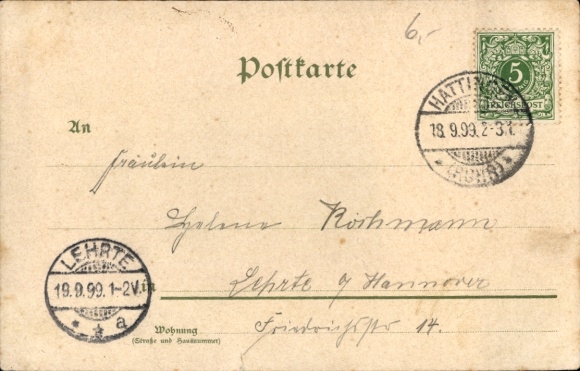 6,-
Postkarte
5
REICHSPOST
HATTINGEN
18.9.99.2-3N.
(RUHR)
An
Fräulein
Helene
LEHRTE
19.9.99.1-2V.
a
in
Lehrte a/ Hannover
Wohnung
(Straße und Hausnummer)
Friedrichsstr 14.